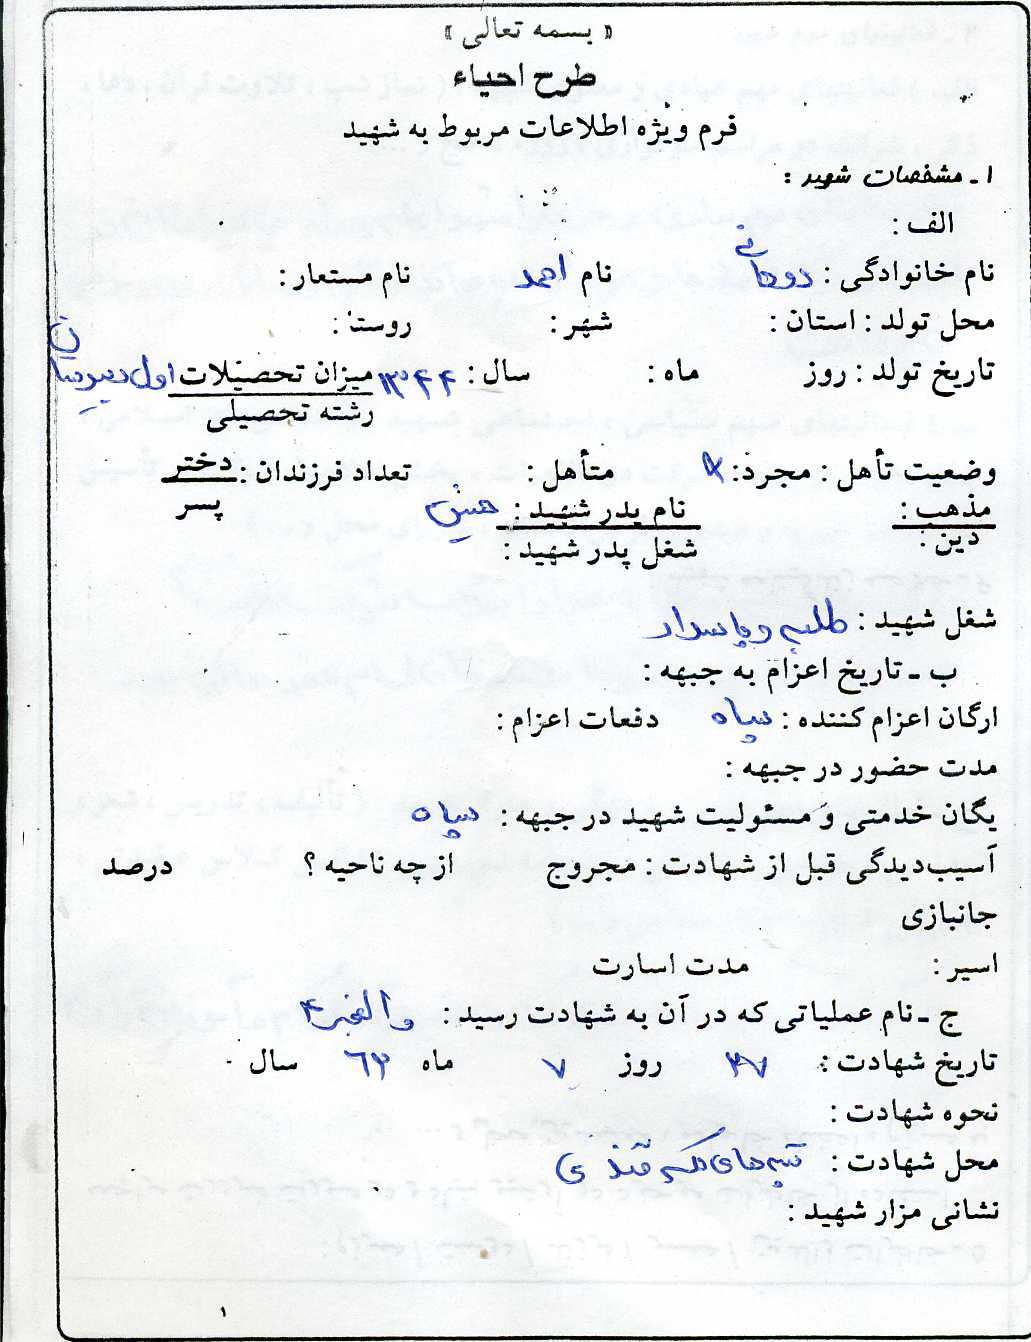 « بسمه تعالی »
طرح احیاء
فرم ویژه اطلاعات مربوط به شهید
۱ـ مشخصات شهید :
الف :
نام خانوادگی : نام احمد نام مستعار :
محل تولد : استان : شهر : روستا :
تاریخ تولد : روز ماه : سال : ۱۳۴۴ میزان تحصیلات اول دبیرستان
رشته تحصیلی
وضعیت تأهل : مجرد : متأهل : تعداد فرزندان : دختر
پسر
مذهب : نام پدر شهید :
دین : شغل پدر شهید :
شغل شهید : طلبه و پاسدار
ب ـ تاریخ اعزام به جبهه :
ارگان اعزام کننده : سپاه دفعات اعزام :
مدت حضور در جبهه :
یگان خدمتی و مسئولیت شهید در جبهه : سپاه
آسیب‌دیدگی قبل از شهادت : مجروح از چه ناحیه ؟ درصد
جانبازی
اسیر : مدت اسارت
ج ـ نام عملیاتی که در آن به شهادت رسید : والفجر ۴
تاریخ شهادت : ۲۷ روز ۷ ماه ۶۲ سال
نحوه شهادت :
محل شهادت : تپه‌های
نشانی مزار شهید :
۱